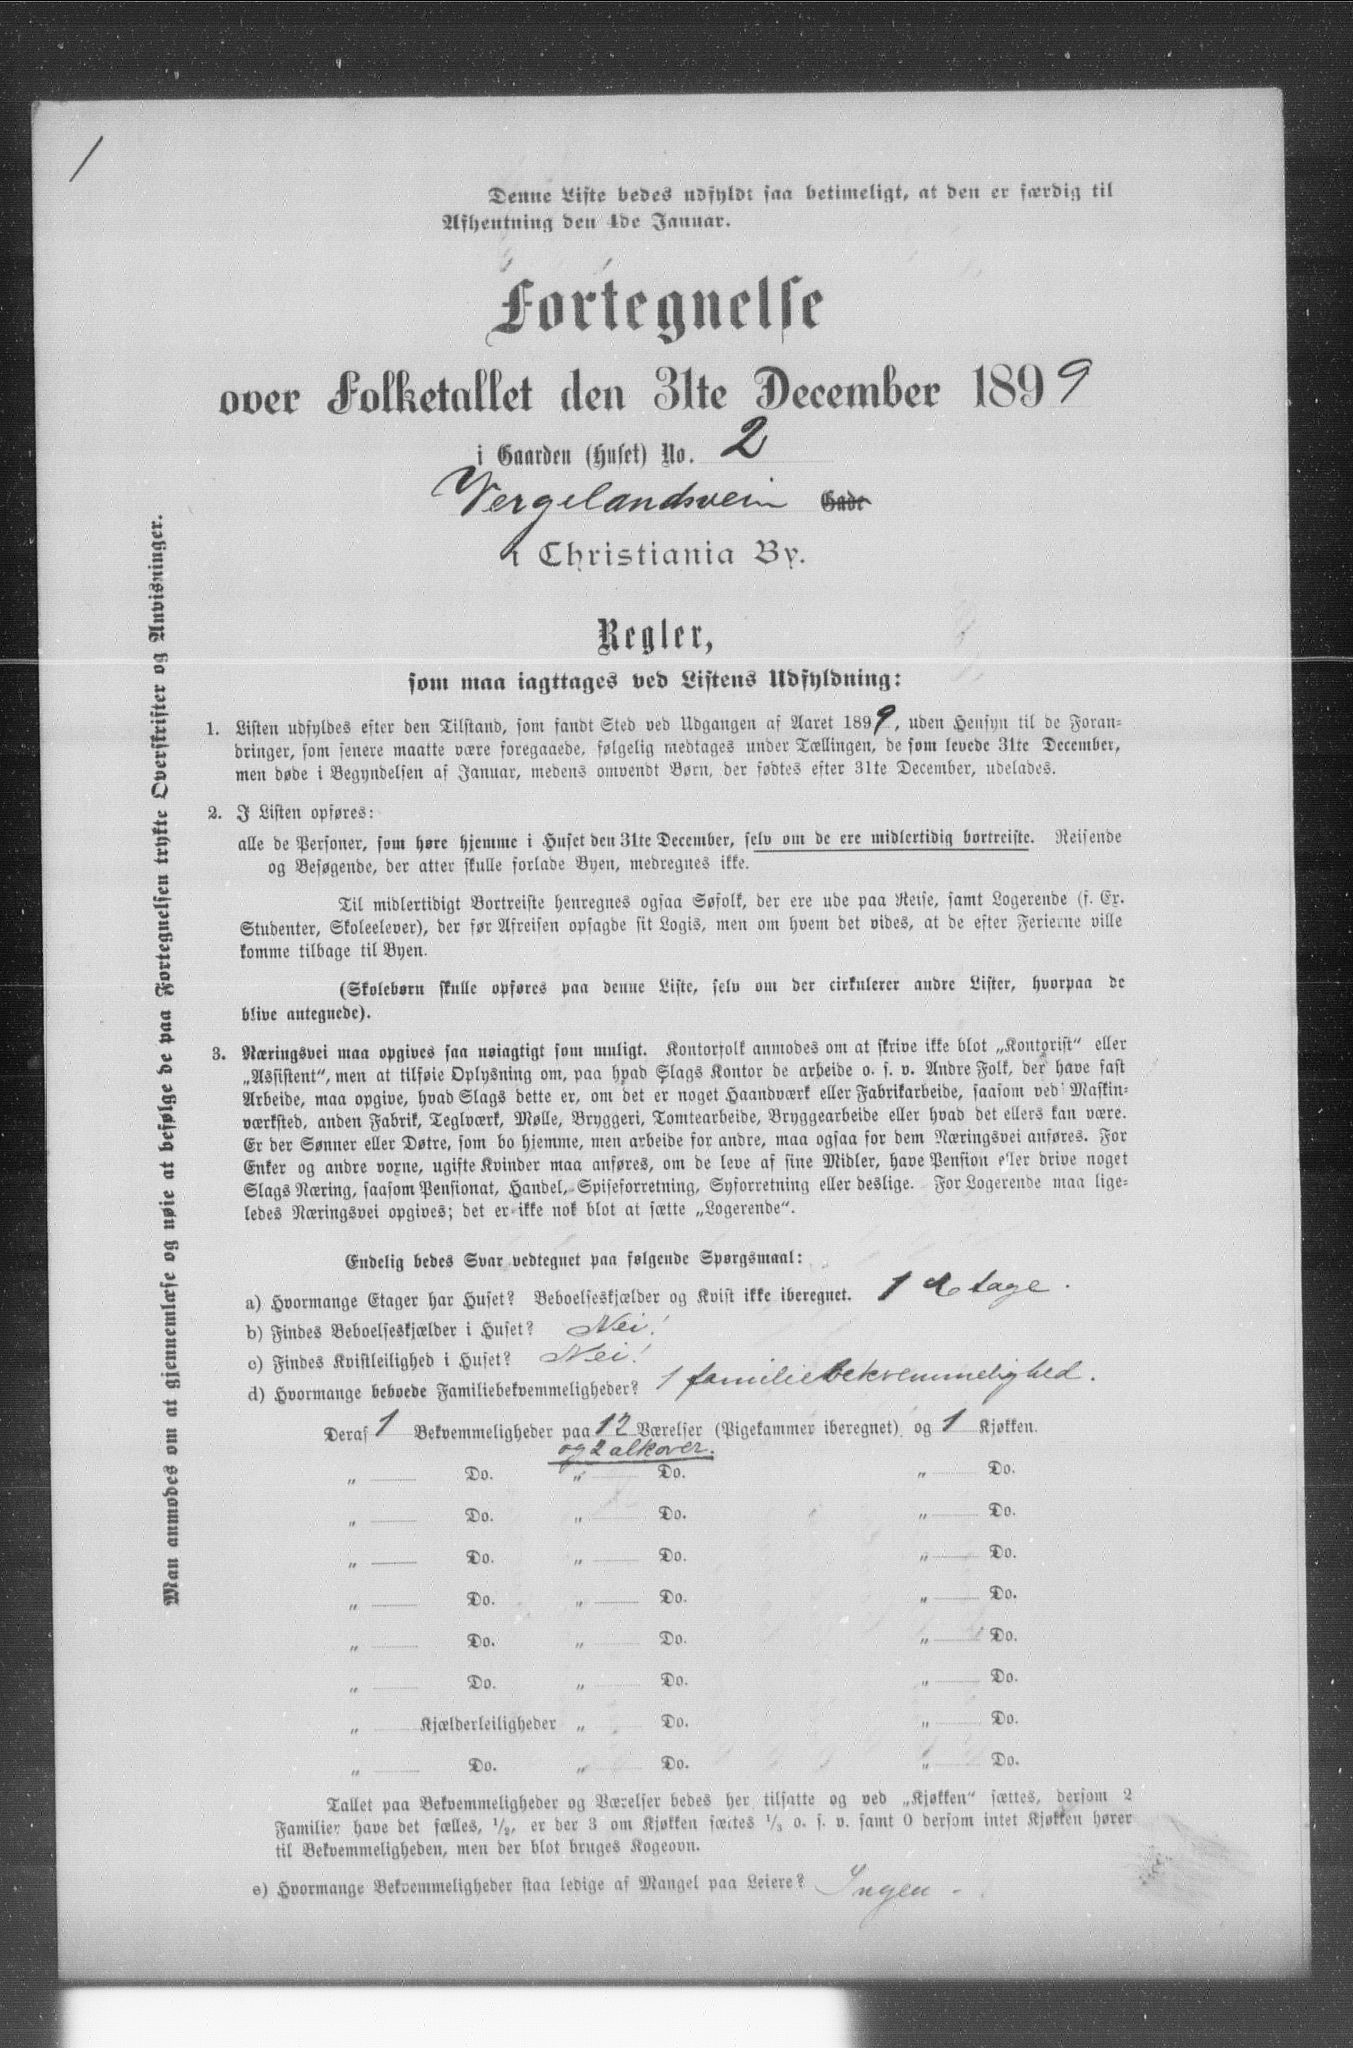 1
Denne Liste bedes udfyldt saa betimeligt, at den er færdig til
Afhentning den 4de Januar.
Fortegnelse
over Folketallet den 31te December 1899
i Gaarden (Huset) No. 2
Vergelandsvein Gade
i Christiania By.
Regler,
som maa iagttages ved Listens Udfyldning:
1. Listen udfyldes efter den Tilstand, som fandt Sted ved Udgangen af Aaret 1899, uden Hensyn til de Foran-
dringer, som senere maatte være foregaaede, følgelig medtages under Tællingen, de som levede 31te December,
men døde i Begyndelsen af Januar, medens omvendt Børn, der fødtes efter 31te December, udelades.
2. I Listen opføres:
alle de Personer, som høre hjemme i Huset den 31te December, selv om de ere midlertidig bortreiste. Reisende
og Besøgende, der atter skulle forlade Byen, medregnes ikke.
Til midlertidigt Bortreiste henregnes ogsaa Søfolk, der ere ude paa Reise, samt Logerende (f. Ex.
Studenter, Skoleelever), der før Afreisen opsagde sit Logis, men om hvem det vides, at de efter Ferierne ville
komme tilbage til Byen.
(Skolebørn skulle opføres paa denne Liste, selv om der cirkulerer andre Lister, hvorpaa de
blive antegnede).
3. Næringsvei maa opgives saa nøiagtigt som muligt. Kontorfolk anmodes om at skrive ikke blot „Kontorist“ eller
„Assistent“, men at tilføie Oplysning om, paa hvad Slags Kontor de arbeide o. s. v. Andre Folk, der have fast
Arbeide, maa opgive, hvad Slags dette er, om det er noget Haandværk eller Fabrikarbeide, saasom ved Maskin-
værksted, anden Fabrik, Teglværk, Mølle, Bryggeri, Tomtearbeide, Bryggearbeide eller hvad det ellers kan være.
Er der Sønner eller Døtre, som bo hjemme, men arbeide for andre, maa ogsaa for dem Næringsvei anføres. For
Enker og andre voxne, ugifte Kvinder maa anføres, om de leve af sine Midler, have Pension eller drive noget
Slags Næring, saasom Pensionat, Handel, Spiseforretning, Syforretning eller deslige. For Logerende maa lige-
ledes Næringsvei opgives; det er ikke nok blot at sætte „Logerende“.
Endelig bedes Svar vedtegnet paa følgende Spørgsmaal:
a) Hvormange Etager har Huset? Beboelseskjælder og Kvist ikke iberegnet. 1 Etage.
b) Findes Beboelseskjælder i Huset? Nei!
c) Findes Kvistleilighed i Huset? Nei!
d) Hvormange beboede Familiebekvemmeligheder? 1 familiebekvemmelighed.
Deraf 1 Bekvemmeligheder paa 12 Værelser (Pigekammer iberegnet) og 1 Kjøkken.
og 2 alkover.
„ Do. „ Do. „ Do.
„ Do. „ Do. „ Do.
„ Do. „ Do. „ Do.
„ Do. „ Do. „ Do.
„ Do. „ Do. „ Do.
„ Do. „ Do. „ Do.
„ Kjælderleiligheder „ Do. „ Do.
„ Do. „ Do. „ Do.
Tallet paa Bekvemmeligheder og Værelser bedes her tilsatte og ved „Kjøkken“ sættes, dersom 2
Familier have det fælles, 1/2, er der 3 om Kjøkken sættes 1/3 o. s. v. samt 0 dersom intet Kjøkken hører
til Bekvemmeligheden, men der blot bruges Kogeovn.
e) Hvormange Bekvemmeligheder staa ledige af Mangel paa Leiere? Ingen -
Man anmodes om at gjennemlæse og nøie at befølge de paa Fortegnelsen trykte Overskrifter og Anvisninger.